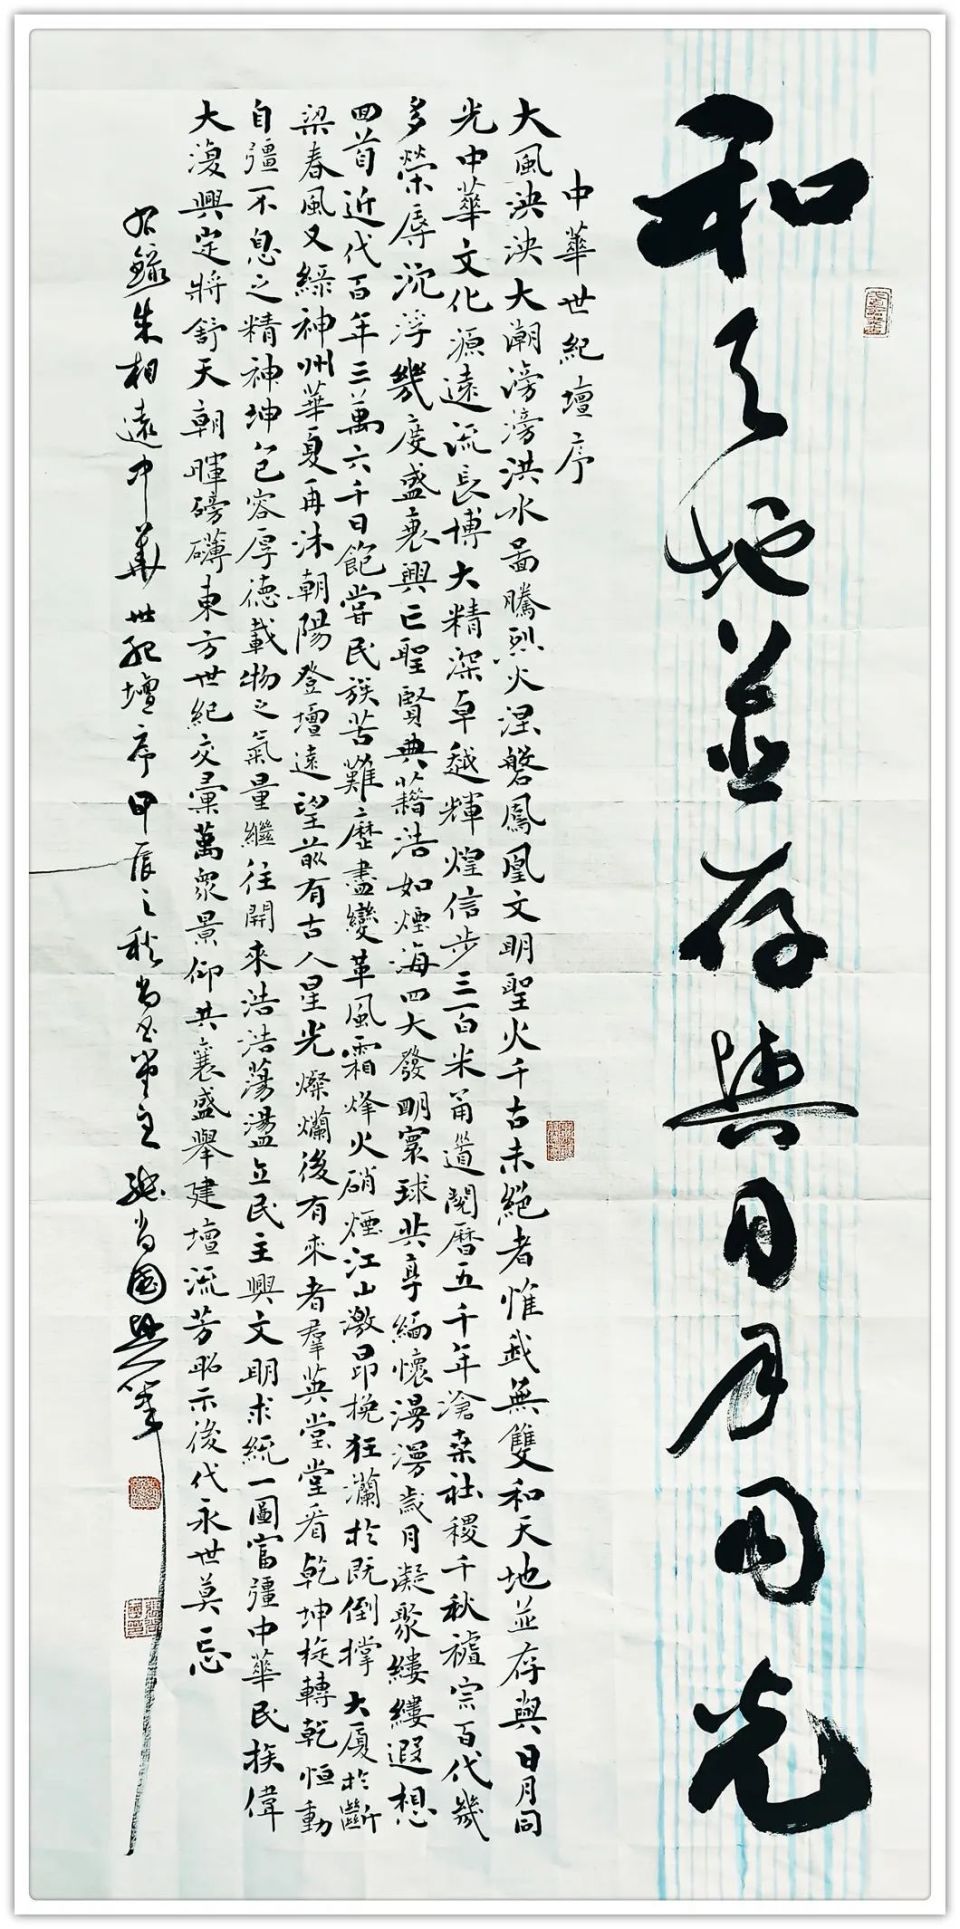 和天地並存與日月同光
中華世紀壇序
大風泱泱大潮滂滂洪水圖騰烈火涅磐鳳凰文明聖火千古未絕者惟我無雙和天地並存與日月同
光中華文化源遠流長博大精深卓越輝煌信步三百米甬道閱曆五千年滄桑社稷千秋禋宗百代幾
多榮辱沉浮幾度盛衰興亡聖賢典籍浩如煙海四大發明寰球共享緬懷漫漫歲月凝聚縷縷遐想
回首近代百年三萬六千日飽嘗民族苦難歷盡變革風霜烽火硝煙江山激昂挽狂瀾於既倒撐大廈於斷
梁春風又綠神州華夏再沐朝陽登壇遠望前有古人星光燦爛後有來者羣英堂堂看乾坤旋轉乾恒動
自彊不息之精神坤包容厚德載物之氣量繼往開來浩浩蕩盪立民主興文明求統一圖富彊中華民族偉
大復興定將舒天朝暉磅礴東方世紀交彙萬眾景仰共襄盛舉建壇流芳昭示後代永世莫忘
右錄朱相遠中華世紀壇序甲辰之秋尚 堂主 尚國 筆